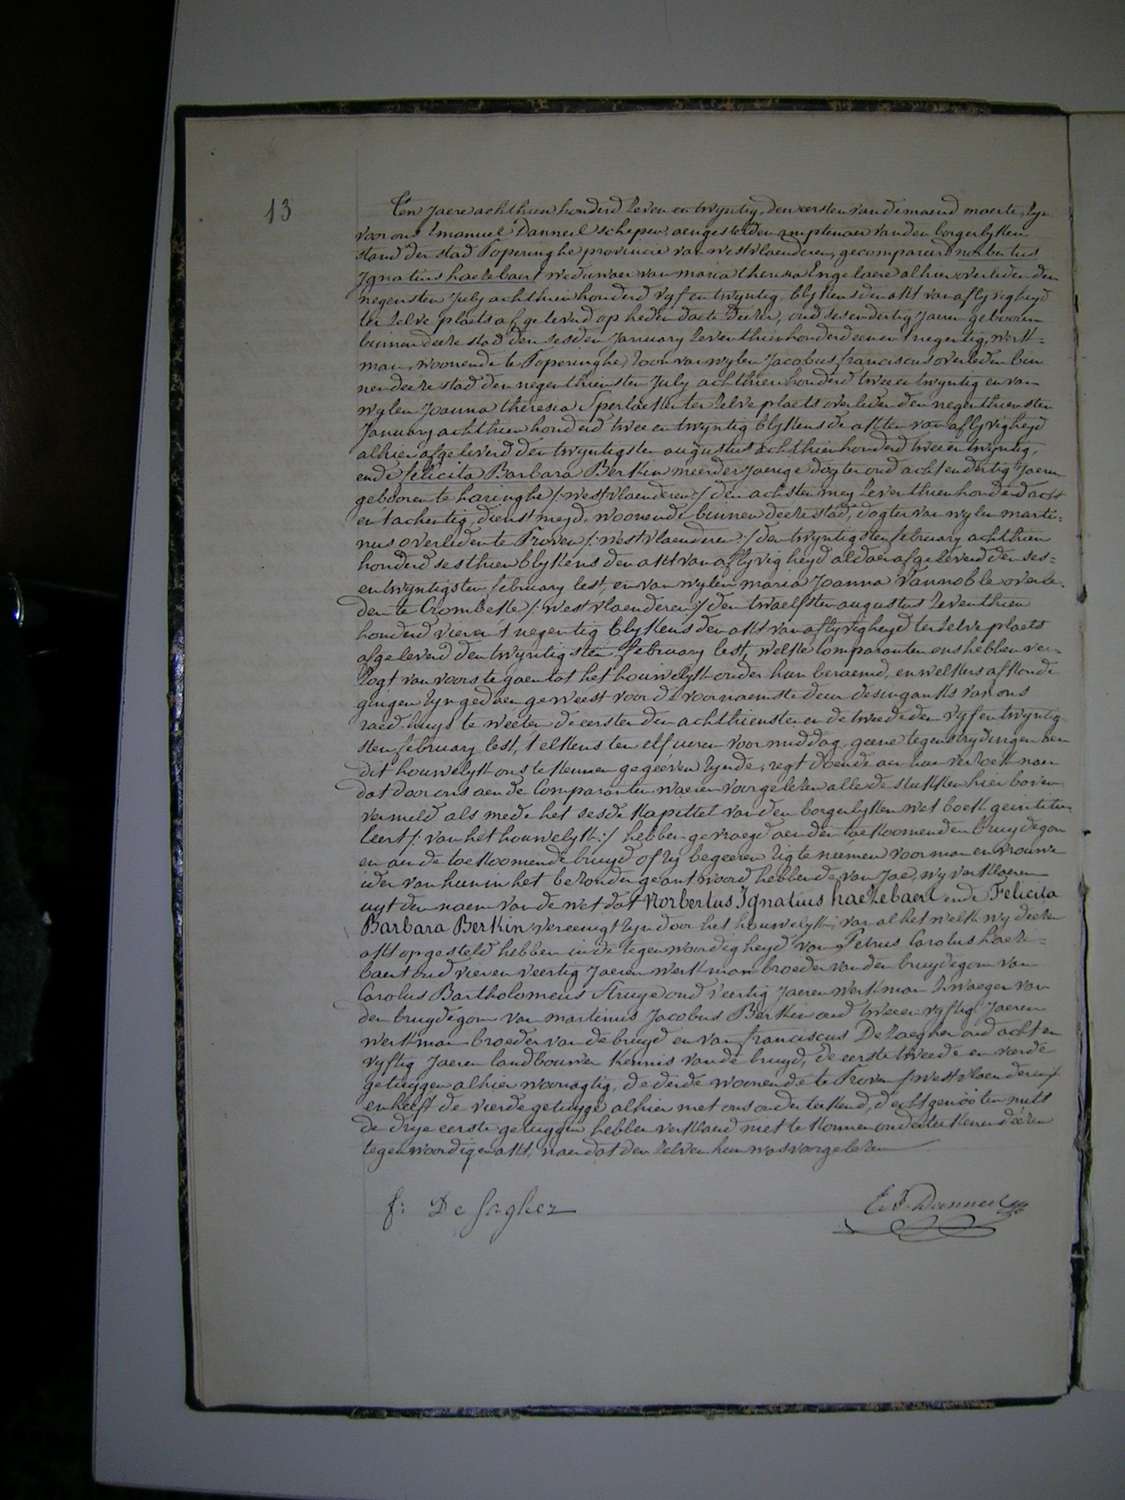 13
Ten Jaere achthien honderd zeven en twyntig, den eersten van de maend maerte, zyn
voor ons Emanuel Danneel schepen, aengestelden amptenaer van den borgerlyken
stand der stad Poperinghe provincie van westvlaenderen, gecompareerd norbertus
Ignatius haezebaert weduwaer van maria theresia Engelaere alhier overleden den
negensten July achthien honderd vyf en twyntig, blykens den akt van aflyvigheyd
ter zelve plaets afgeleverd op heden daete dezer, oud sesendertig Jaeren gebooren
binnen deeze stad den sesden January zeventhien honderd een en 't negentig, werk=
man, woonende te Poperinghe, zoon van wylen Jacobus franciscus overleden bin
nen deeze stad den negenthiensten July achthien honderd twee en twyntig en van
wylen Joanna theresia Sperlaeken ter zelve plaets overleden den negenthiensten
January achthien honderd twee en twyntig blykens de akten van aflyvigheyd
alhier afgeleverd den twyntigsten augustus achthien honderd twee en twyntig,
ende felicita Barbara Berkin meerderjaerige dogter oud achtendertig Jaeren
gebooren te haringhe /: westvlaenderen :/ den achsten mey zeventhien honderd acht
en tachentig, dienstmeyd, woonende binnen deeze stad, dogter van wylen marti=
nus overleden te Proven /: westvlaenderen :/ den twyntigsten february achthien
honderd sesthien blykens den akt van aflyvigheyd aldaer afgeleverd den ses=
en twyntigsten february lest, en van wylen maria Joanna Vannoble overle=
den te Crombeke /: westvlaenderen :/ den twaelfsten augustus zeventhien
honderd vier en 't negentig blykens den akt van aflyvigheyd ter zelve plaets
afgeleverd den twyntigsten february lest, welke comparanten ons hebben ver=
zogt van voors te gaen tot het houwelyk onder hun beraemd, en welkers afkondi
gingen zyn gedaen geweest voor de voornaemste deur des ingangks van ons
raed-huys te weeten de eerste den achthiensten en de tweede den vyf en twyntig
sten february lest, t'elkens ten elf uren voor middag, geene tegenstrydingen aen
dit houwelyk ons te kennen gegeeven zynde, regt doende aen hun verzoek naer
dat door ons aen de comparanten waeren voorgelezen alle de stukken hier boven
vermeld als mede het sesde kapittel van den borgerlyken wet boek geintitu
leert /: van het houwelyk :/ hebben gevraegd aen den toekoomenden bruydegom
en aen de toekoomende bruyd of zy begeeren zig te neemen voor man en vrouwe
ider van hun in het bezonder geantwoord hebbende van Jae, wy verklaeren
uyt den naem van de wet dat Norbertus Ignatius haezebaert ende Felicita
Barbara Berkin vereenigt zyn door het houwelyk; van al het welk wy deezen
akt opgesteld hebben in de tegenwoordigheyd van Petrus Carolus haeze=
baert oud vier en veertig Jaeren werkman broeder van den bruydegom van
Carolus Bartholomeus Struye oud veertig Jaeren werkman zwaeger van
den bruydegom van martinus Jacobus Berkin oud twee en vyftig Jaeren
werkman broeder van de bruyd en van franciscus De Zaegher oud acht en
vyftig Jaeren landbouwer kennis van de bruyd, de eerste tweede en vierde
getuygen alhier woonagtig, de derde woonende te Proven /: westvlaenderen :/
en heeft de vierde getuyge alhier met ons onderteekend, d'echtgenooten mits
de drye eerste getuygen hebben verklaerd niet te konnen onderteekenen deezen
tegenwoordigen akt, naer dat den zelven hun was voorgelezen
f: De Sagher
E. F. Danneel